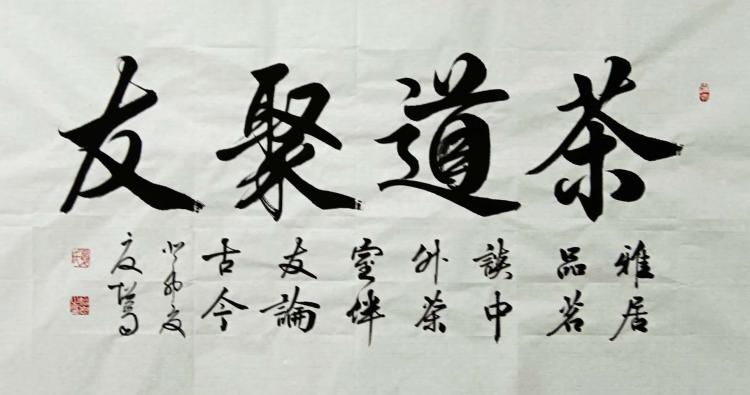 茶道聚友
雅居
品茗
談中
外茶
室伴
友論
古今